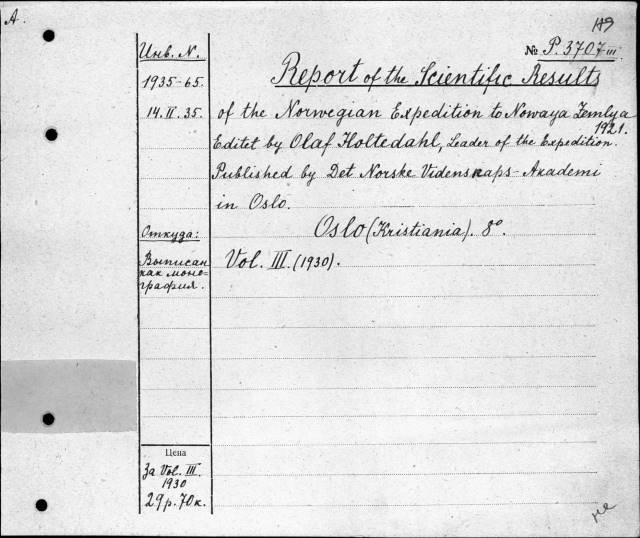 A.
119
Инв. N.
№ P. 3707 III
Report of the Scientific Results
1935-65.
14. II. 35.
of the Norwegian Expedition to Nowaya Zemlya
1921.
Editet by Olaf Holtedahl, Leader of the Expedition.
Published by Det Norske Videnskaps-Akademi
in Oslo.
Откуда:
Oslo (Kristiania). 8°.
Выписан
как моно-
графия.
Vol. III. (1930).
Цена
За Vol. III.
1930
29 р. 70 к.